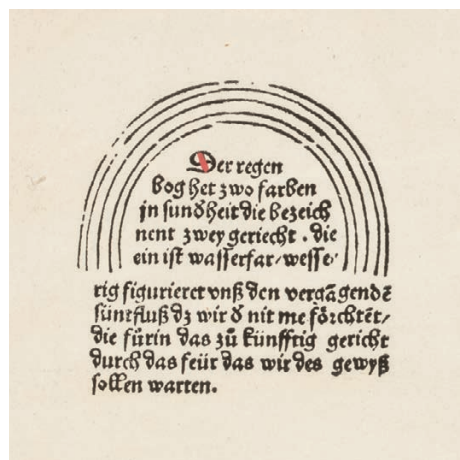 Der regen
bog het zwo farben
jn sundheit die bezeich
nent zwey geriecht . die
ein ist wasserfar/wesse/
rig figurieret vnß den vergāgendē
süntfluß dz wir d nit me förchtēt/
die fürin das zů künfftig gericht
durch das feür das wir des gewyß
sollen warten.